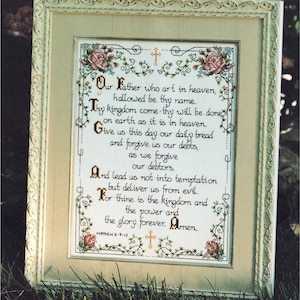 Our Father who art in heaven,
hallowed be thy name.
Thy kingdom come-thy will be done
on earth as it is in heaven.
Give us this day our daily bread
and forgive us our debts,
as we forgive
our debtors.
And lead us not into temptation
but deliver us from evil.
For thine is the kingdom and
the power and
the glory forever. Amen.
MATTHEW 6:9-13